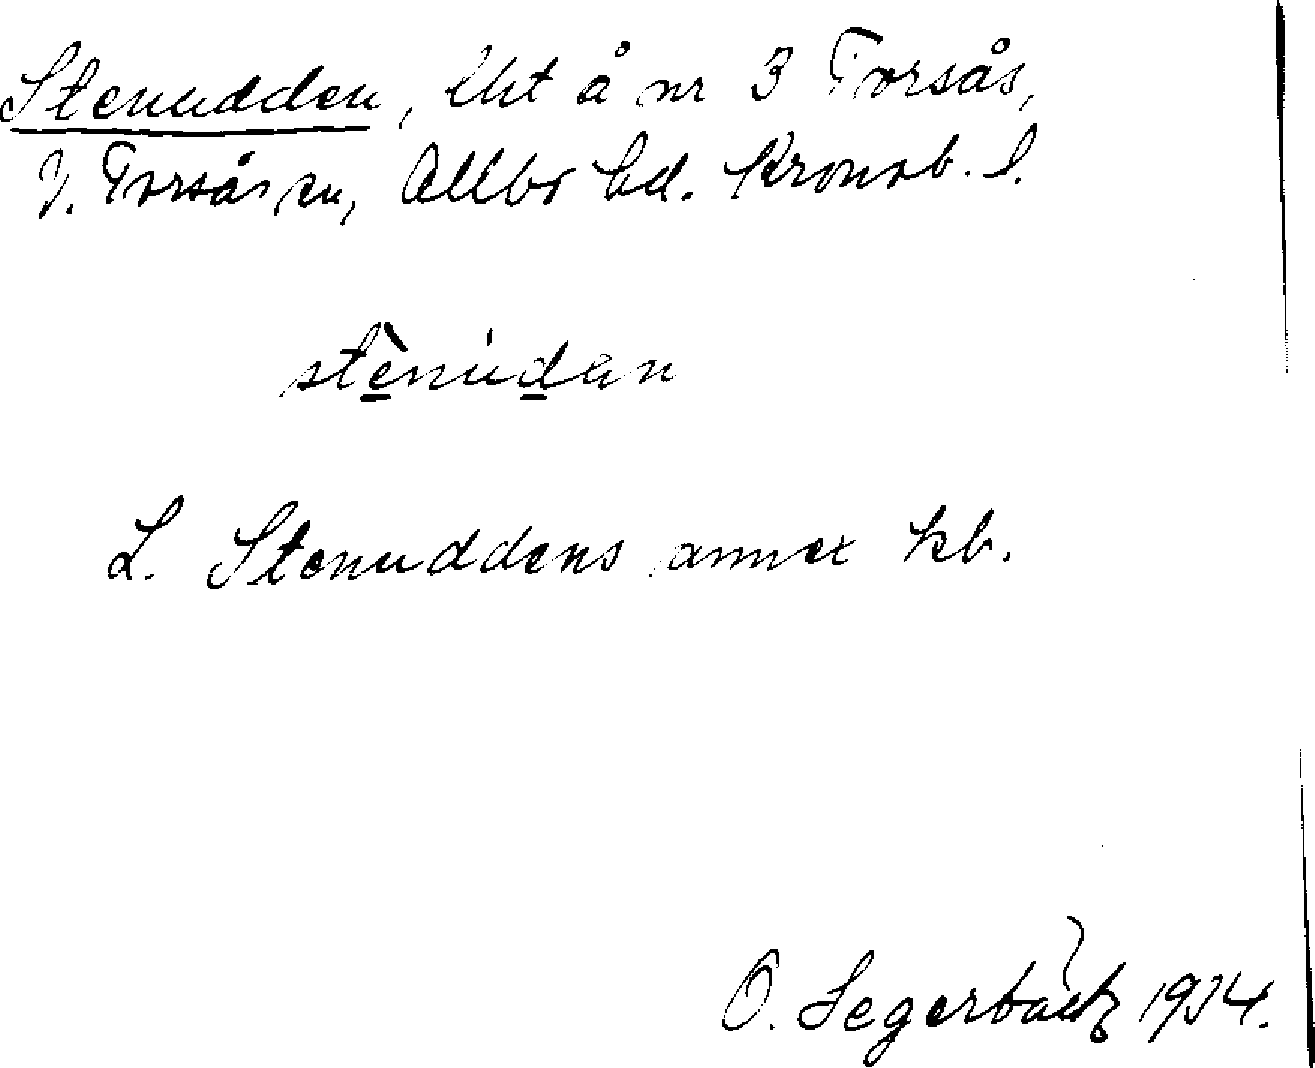 Stenudden, lht å nr 3 Torsås,
V. Torsås sn, Allbo hd. Kronob. l.
stènúdan
L. Stenuddens annex kb.
O. Segerbäck 1934.